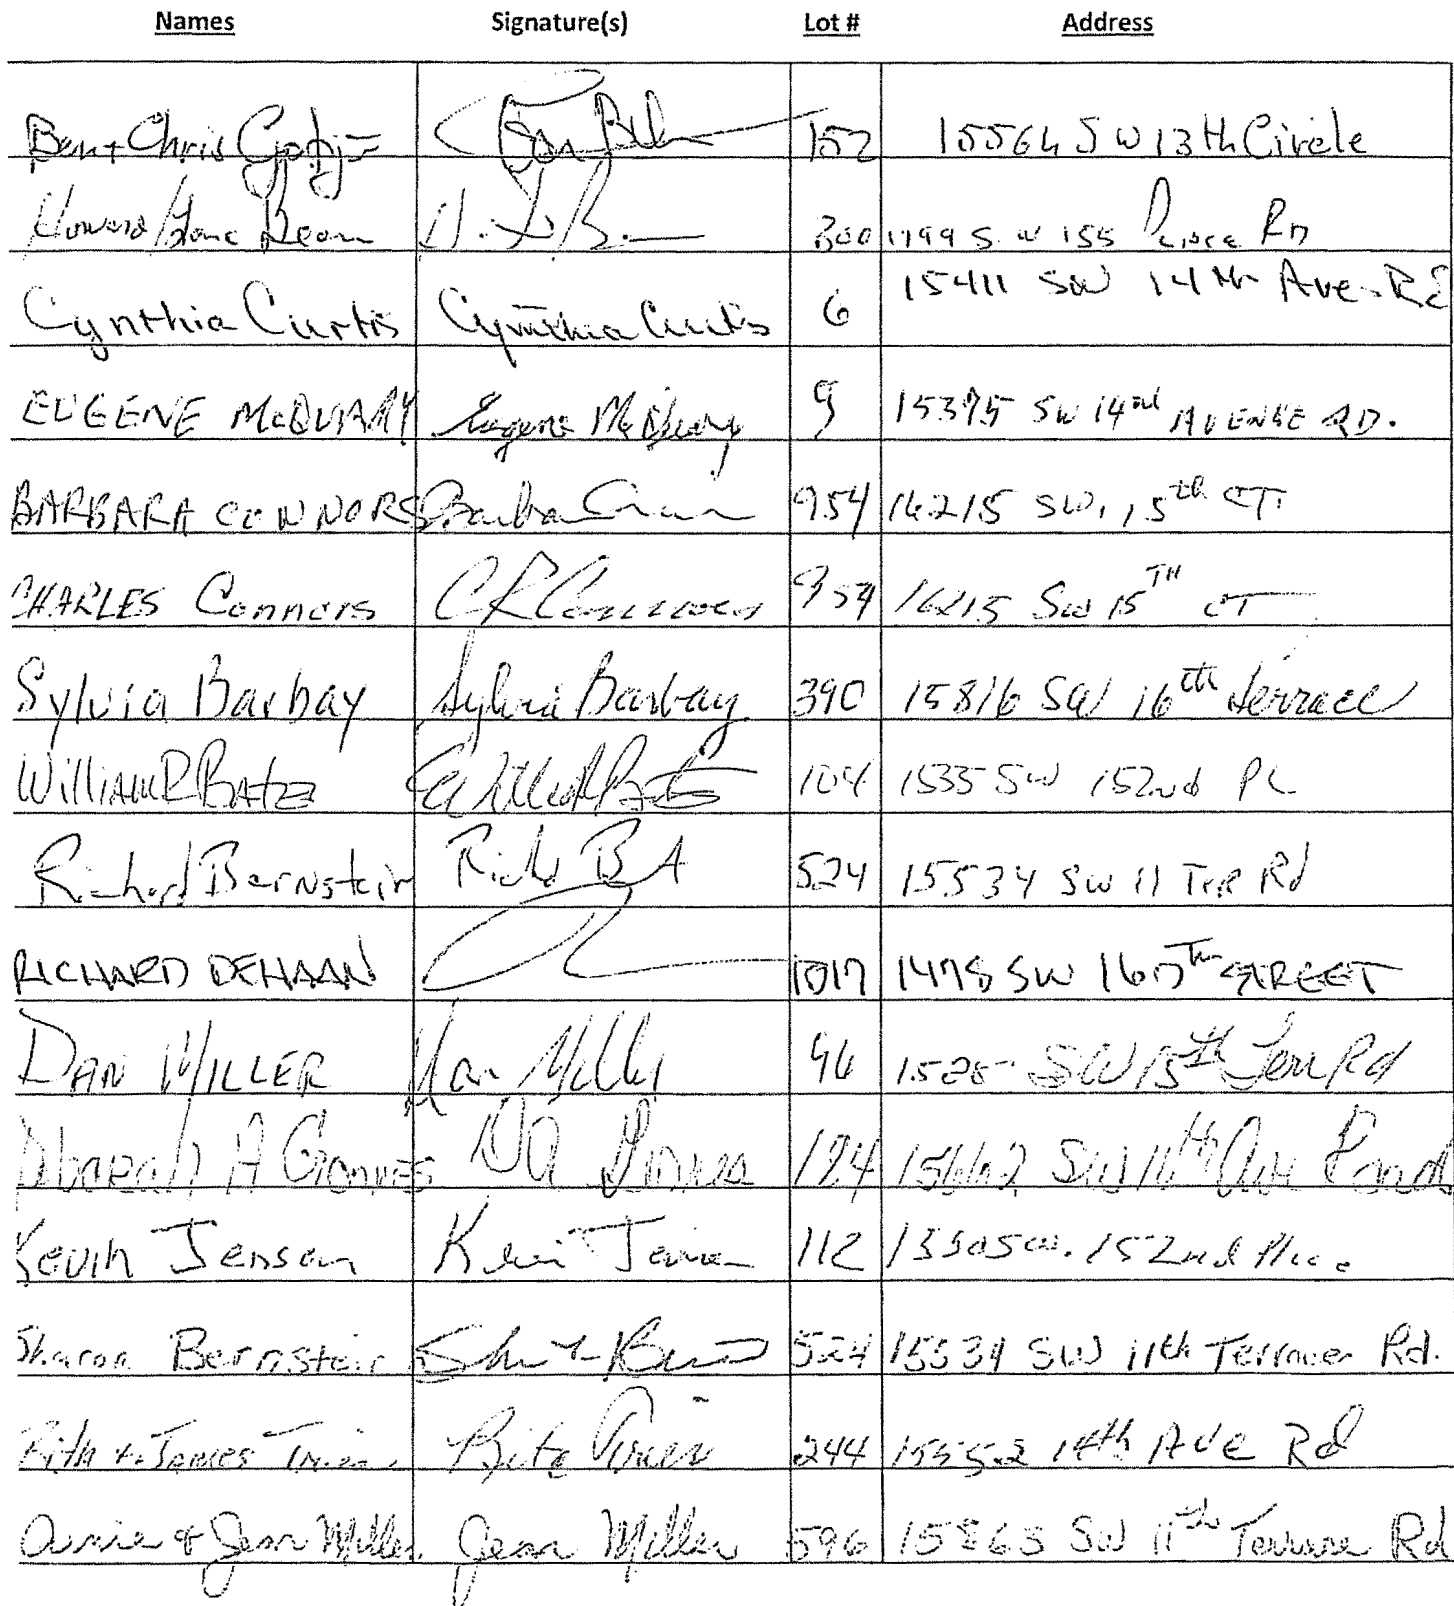 Names Signature(s) Lot # Address
Ben + Chris 152 15564 SW 13th Circle
Howard Bean 300 1799 S.W 155 Rd
Cynthia Curtis Cynthia Curtis 6 15411 SW 14th Ave. Rd
EUGENE McQUARY Eugene McQuary 9 15375 SW 14 AVENUE RD.
BARBARA CONNORS Barbara 954 16215 SW. 15th CT.
CHARLES Connors CR Connors 954 16215 SW 15TH CT
Sylvia Barbay Sylvia Barbay 390 15816 SW 16th Terrace
William R Bates 104 1535 SW 152nd PL
Richard Bernstein 524 15534 SW 11 Ter Rd
RICHARD DEHAAN 1017 1478 SW 167Th STREET
DAN MILLER Dan Miller 96 SW 15th Terr Rd
Deborah A DA 15662 SW 11th Ave Road
Kevin Jensen Kevin Jensen 112 152nd Place
Sharon Bernstein 524 15534 SW 11th Terrace Rd.
Rita + James Rita 244 15552 14th Ave Rd
& Jean Miller Jean Miller 596 15863 SW 11th Terrace Rd